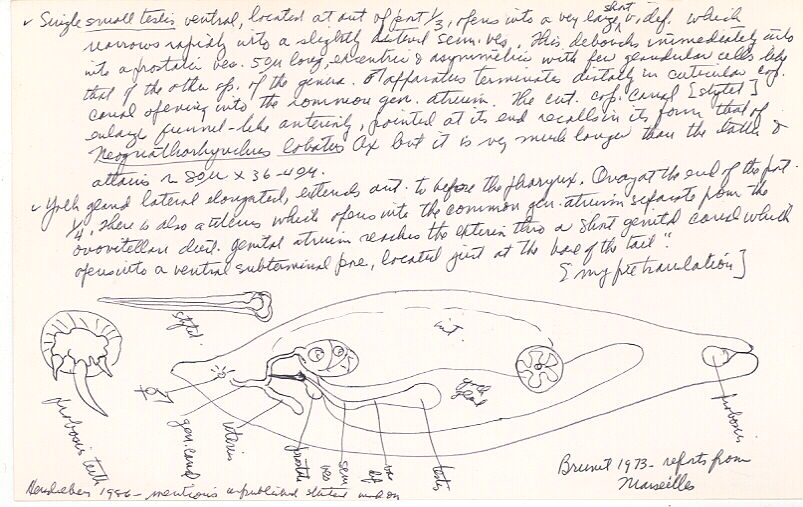 ✓ Single small testis ventral, located at ant of post 1/3, opens into a very large short v. def. which
narrows rapidly into a slightly lateral sem. ves. This debouchs immediately into
into a prostatic ves. 50µ long, excentric & asymmetric with few glandular cells like
that of the other sp. of the genus. ♂ apparatus terminates distally in cuticular cop.
canal opening into the common gen. atrium. The cut. cop. canal [stylet]
enlarge funnel-like anteriorly, pointed at its end recalls in its form that of
Neognathorhynchus lobatus Ax but it is very much longer than the latter &
attains ~ 80µ x 36-40µ.
✓ Yolk gland lateral elongated, extends ant. to before the pharynx. Ovary at the end of the post.
1/4. There is also a uterus which opens into the common gen. atrium separate from the
ovovitelline duct. genital atrium reaches the exterior thro a short genital canal which
opens into a ventral subterminal pore, located just at the base of the tail."
[my free translation]
stylet
int.
yolk gland
♀♂
gen. canal
uterus
prostate
sem ves
vas def
testis
proboscis
proboscis teeth
Brunet 1973 - reports from
Marseilles
1986 - mentions unpublished